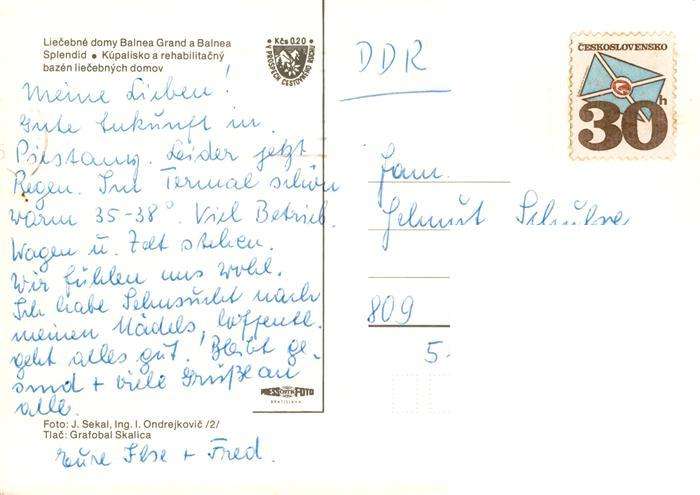 Liečebné domy Balnea Grand a Balnea
Splendid • Kúpalisko a rehabilitačný
bazén liečebných domov
Kčs 0.20
V PROSPECH CESTOVNÉHO RUCHU
Meine Lieben!
Gute Ankunft in
Piestany. Leider jetzt
Regen. Im Termal schön
warm 35-38°. Viel Betrieb.
Wagen u. Zelt stehen.
Wir fühlen uns wohl.
Ich habe Sehnsucht nach
meinen Mädels, hoffentl.
geht alles gut. Bleibt ge-
sund + viele Grüße an
alle.
PRESSFOTO
BRATISLAVA
Foto: J. Sekal, Ing. I. Ondrejkovič /2/
Tlač: Grafobal Skalica
Eure Ilse + Fred.
DDR
ČESKOSLOVENSKO
30h
Fam.
Helmut Schulze
809
5.